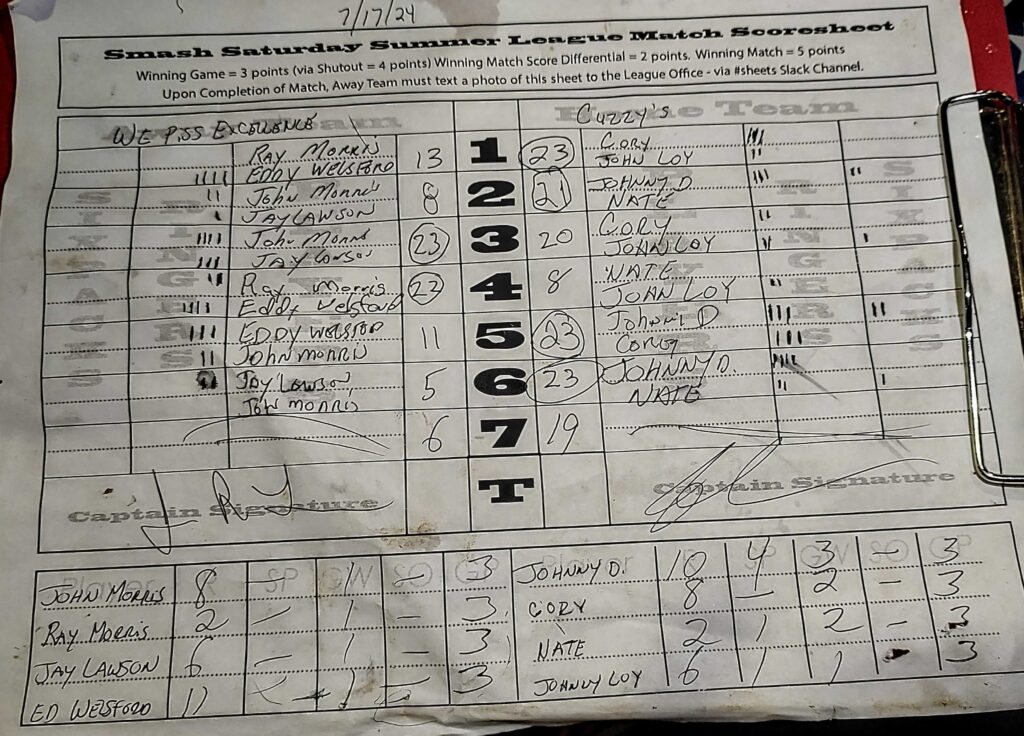 7/17/24
Smash Saturday Summer League Match Scoresheet
Winning Game = 3 points (via Shutout = 4 points) Winning Match Score Differential = 2 points. Winning Match = 5 points
Upon Completion of Match, Away Team must text a photo of this sheet to the League Office - via #sheets Slack Channel.
WE PISS EXCELLENCE Cuzzy's Home Team
RAY MORRIS 13 1 23 CORY
EDDY WELSFORD JOHN LOY
John Morris 8 2 21 JOHNNY D.
JAY LAWSON NATE
John Morris 23 3 20 CORY
JAY Lawson JOHN LOY
Ray Morris 22 4 8 NATE
Eddy Welsford JOHN LOY
EDDY WELSFORD 11 5 23 Johnny D
John MORRIS CORY
JAY LAWSON 5 6 23 JOHNNY D.
John MORRIS NATE
6 7 19
T
Captain Signature Captain Signature
Player SP GW SO GP Player SP GW SO GP
JOHN MORRIS 8 - 1 - 3 JOHNNY D. 10 4 3 - 3
RAY MORRIS 2 - 1 - 3 CORY 8 - 2 - 3
JAY LAWSON 6 - 1 - 3 NATE 2 1 2 - 3
ED WELSFORD 11 - 1 - 3 JOHNNY LOY 6 1 1 3